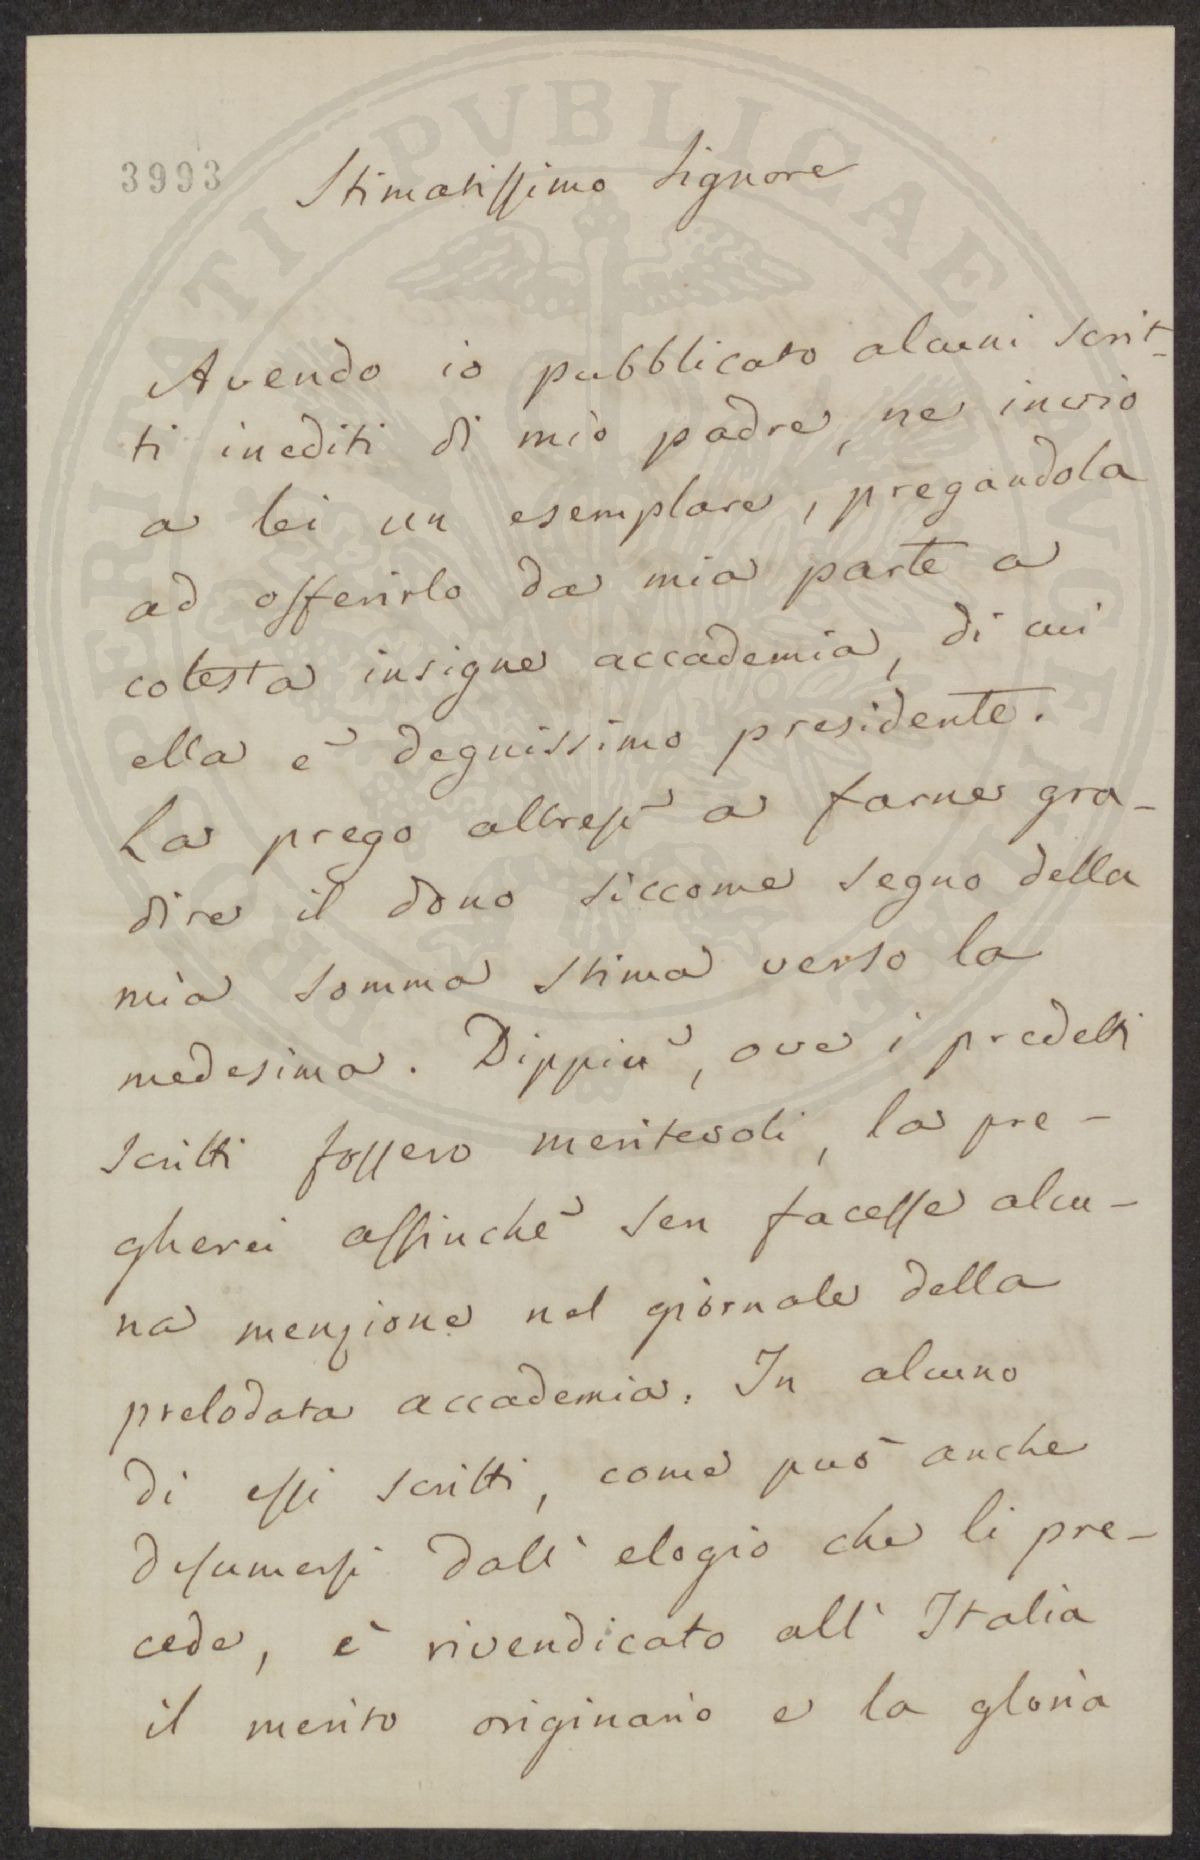 3993
Stimatissimo Signore
Avendo io pubblicato alcuni scrit-
ti inediti di mio padre, ne invio
a lei un esemplare, pregandola
ad offerirlo da mia parte a
cotesta insigne accademia, di cui
ella è degnissimo presidente.
La prego altresì a farne gra-
dire il dono siccome segno della
mia somma stima verso la
medesima. Dippiù, ove i predetti
scritti fossero meritevoli, la pre-
gherei affinchè sen facesse alcu-
na menzione nel giornale della
prelodata accademia. In alcuno
di essi scritti, come può anche
desumersi dall' elogio che li pre-
cede, è rivendicato all' Italia
il merito originario e la gloria